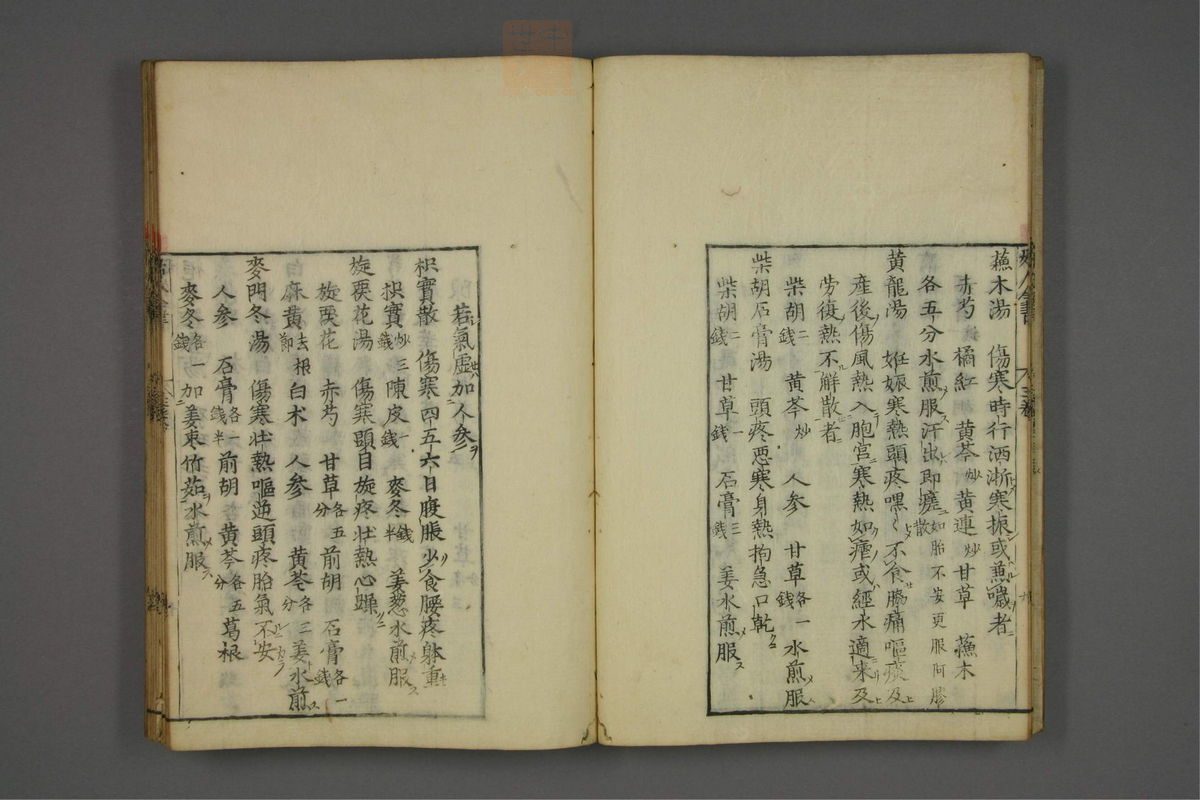 蘓木湯 傷寒時行洒淅寒振或熱噦者
赤芍 橘紅 黄芩炒 黄連炒 甘草 蘓木
各五分水煎服汗出即瘥如胎不安更服阿膠散
黄龍湯 妊娠寒熱頭疼嘿〻不食脇痛嘔痰及
産後傷風熱入胞宫寒熱如瘧或經水適来及
労復熱不解散者
柴胡二錢 黄芩炒 人参 甘草各一錢 水煎服
柴胡石膏湯 頭疼悪寒身熱拘急口乾
柴胡二錢 甘草一錢 石膏三錢 姜水煎服
若氣虚加人参
枳實散 傷寒四五六日腹脹少食腰疼躰重
枳實炒三錢 陳皮一錢 麥冬錢半 姜葱水煎服
旋覆花湯 傷寒頭目旋疼壮熱心躁
旋覆花 赤芍 甘草各五分 前胡 石膏各一錢
麻黄去根節 白术 人参 黄芩各三分 姜水煎
麥門冬湯 傷寒壮熱嘔逆頭疼胎氣不安
人参 石膏各一錢半 前胡 黄芩各五分 葛根
麥冬各一錢 加姜枣竹茹水煎服